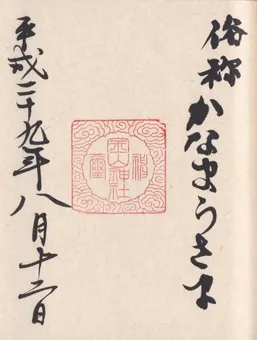 俗称かなまらさま
金山神社
平成二十九年八月十二日